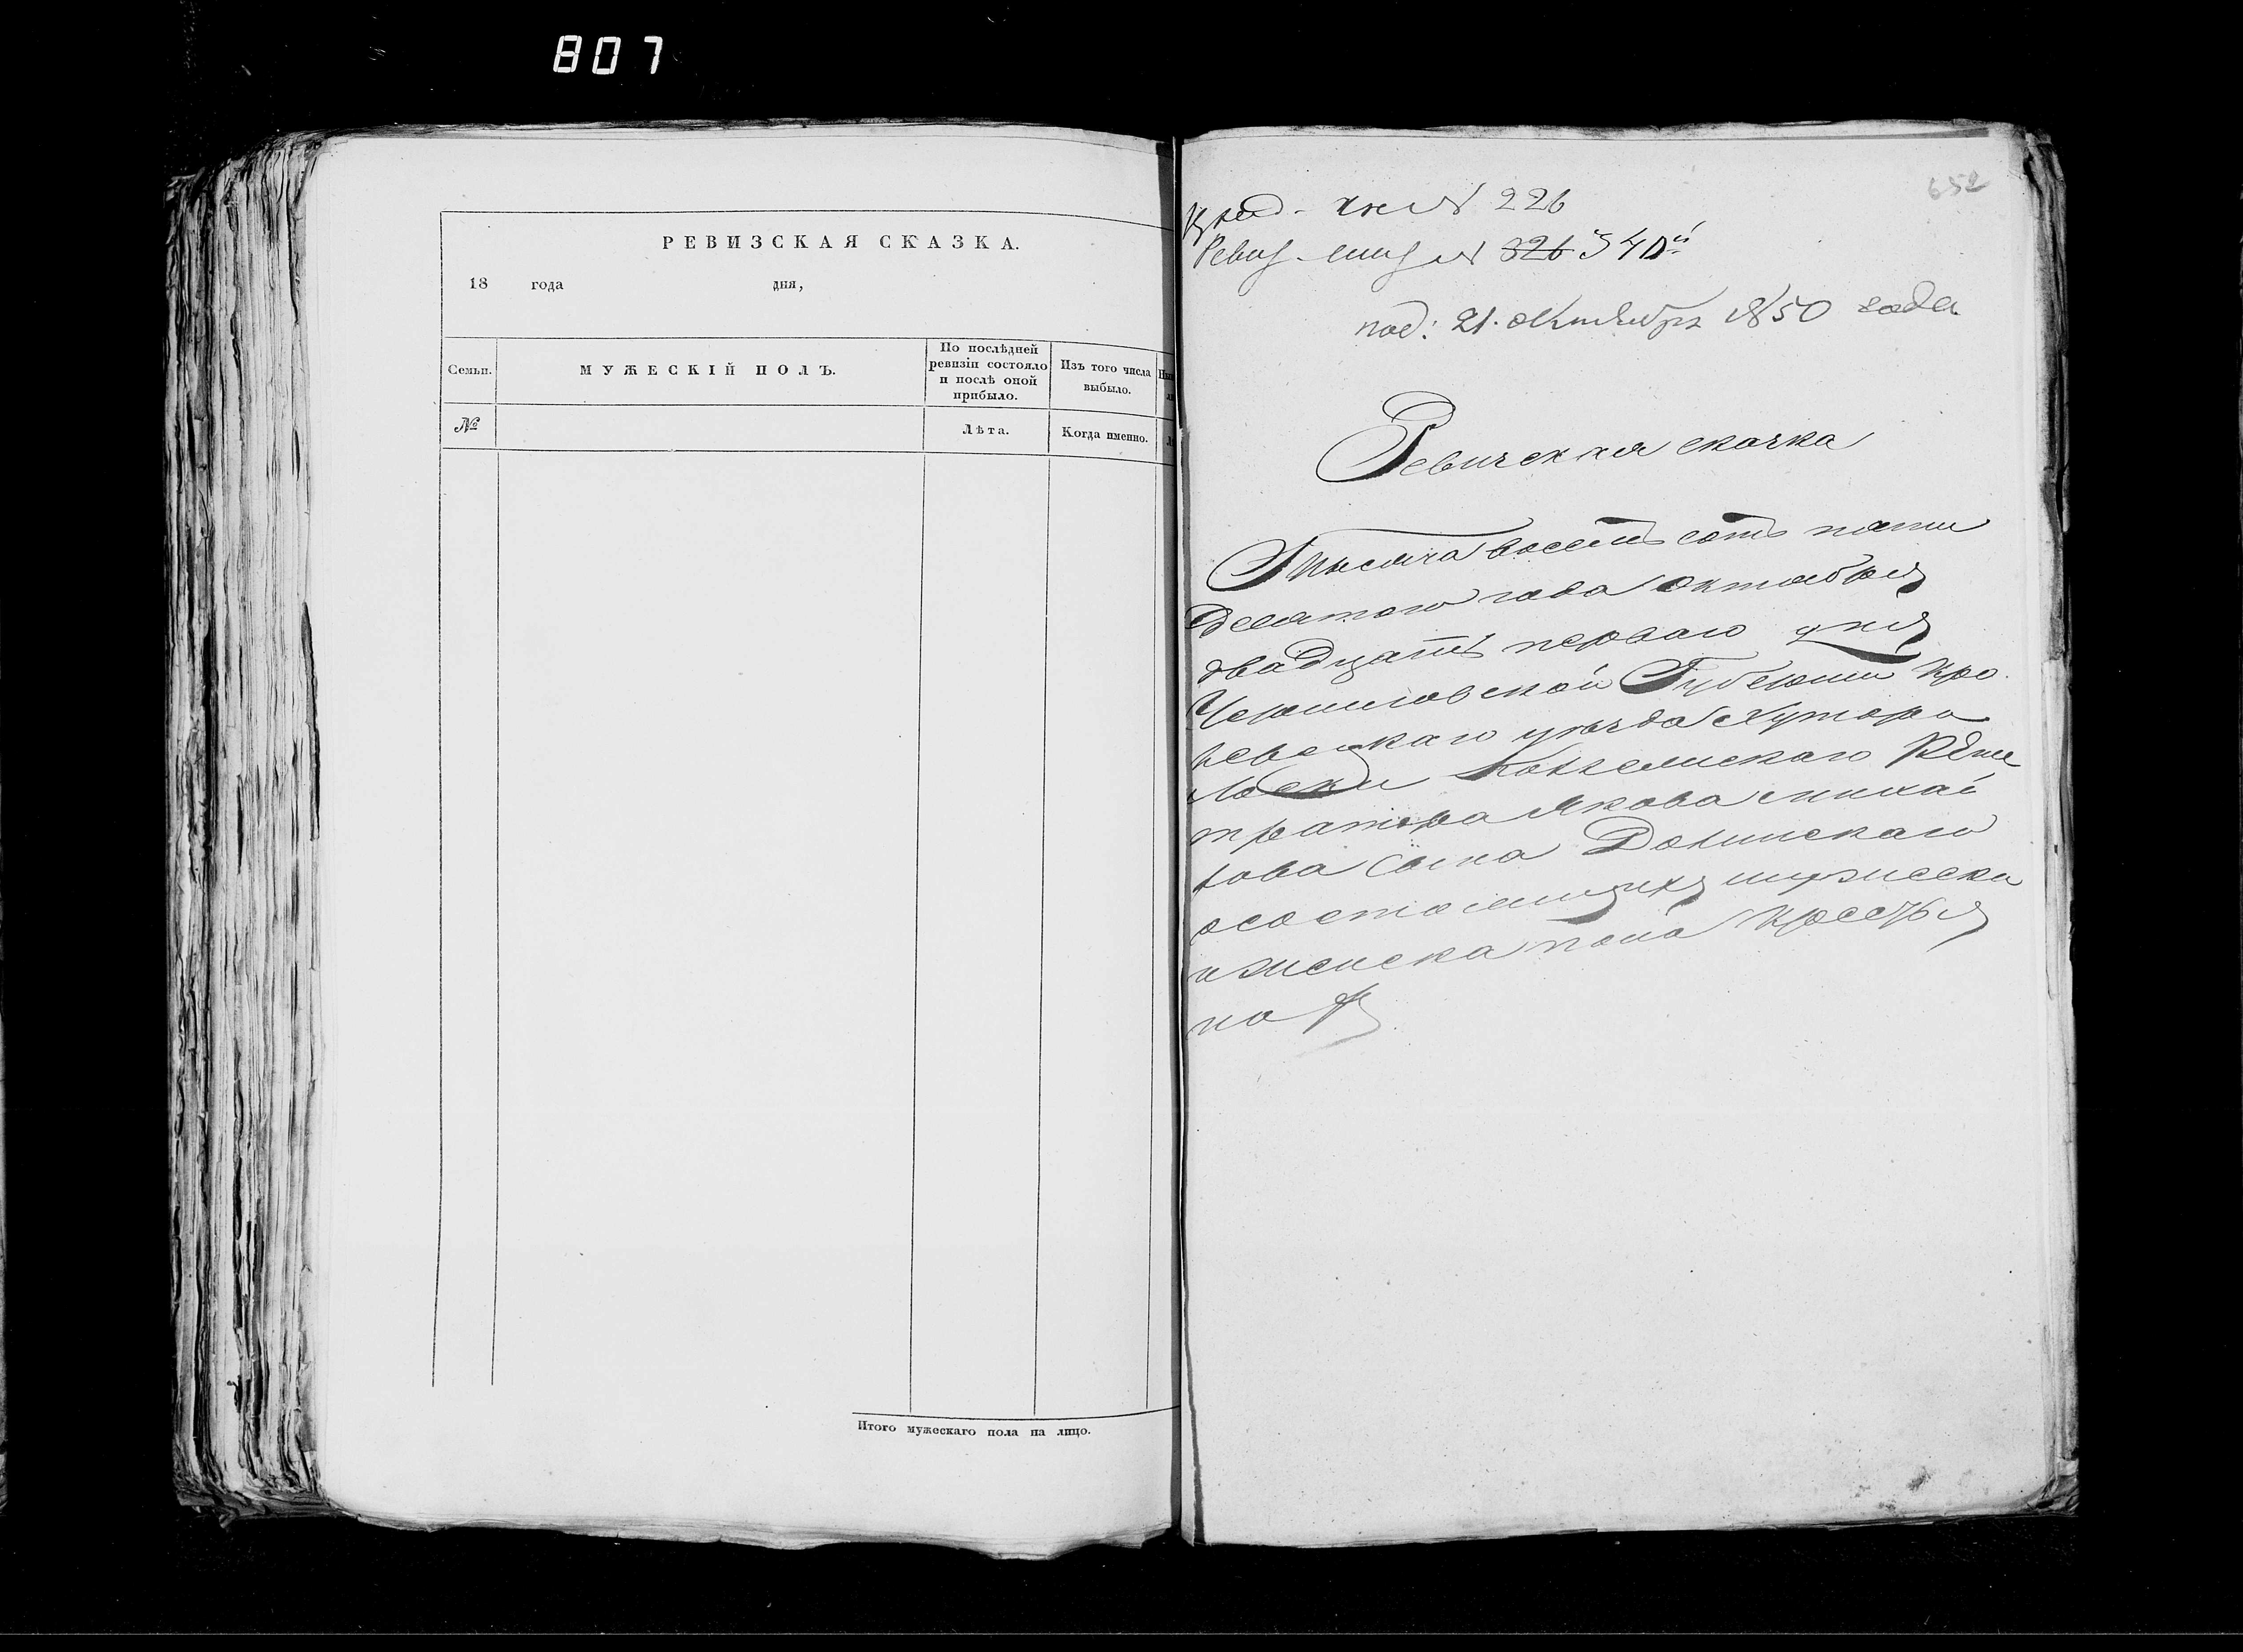 807
РЕВИЗСКАЯ СКАЗКА.
18 года дня,
Семьи.
МУЖЕСКІЙ ПОЛЪ.
По послѣдней
ревизіи состояло
и послѣ оной
прибыло.
Изъ того числа
выбыло.
№
Лѣта.
Когда именно.
Итого мужескаго пола на лицо.
652
№ 226
Ревиз № 326 340й
под: 21. октября 1850 года
Ревизская сказка
Тысяча восемь сотъ пяти
десятого года октября
двадцать перваго дня
Черниговской Губернии Кро
левецкаго уезда хутора
Лоски Коллежскаго Реги
тратора Якова михай
лова сына Долинскаго
осостоящихъ мужеска
и женска пола крестья
нахъ